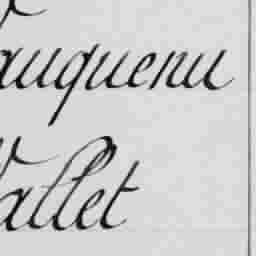 auquenu
allet